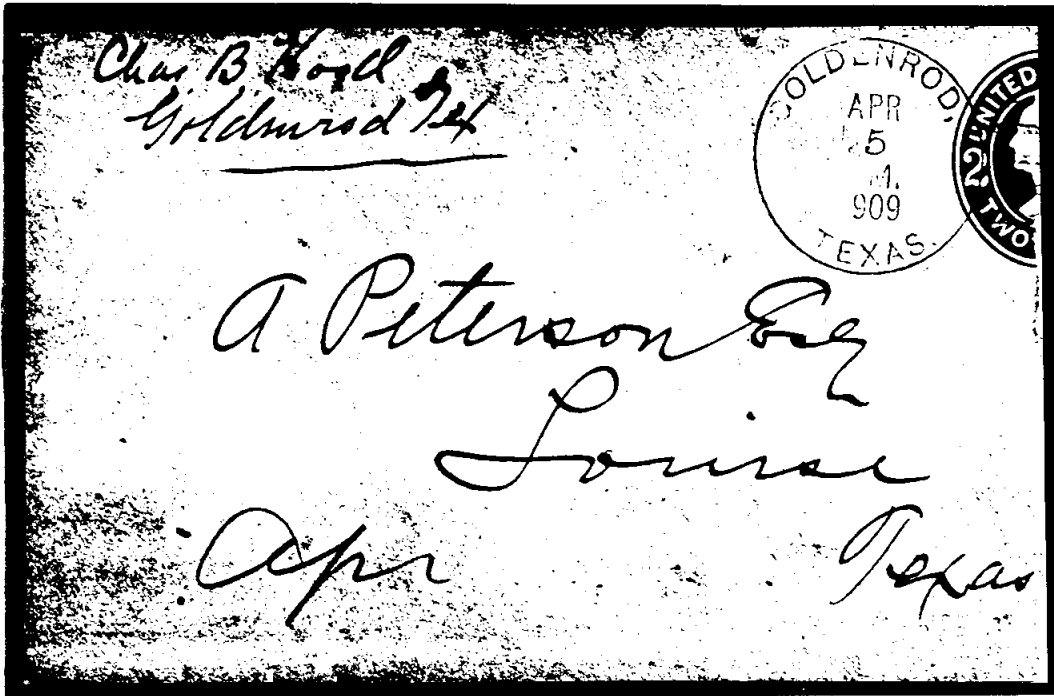 Chas B
Goldenrod Tex
GOLDENROD,
APR
5
M.
909
TEXAS.
UNITED
2
TWO
A Peterson Esq
Louise
Apr Texas